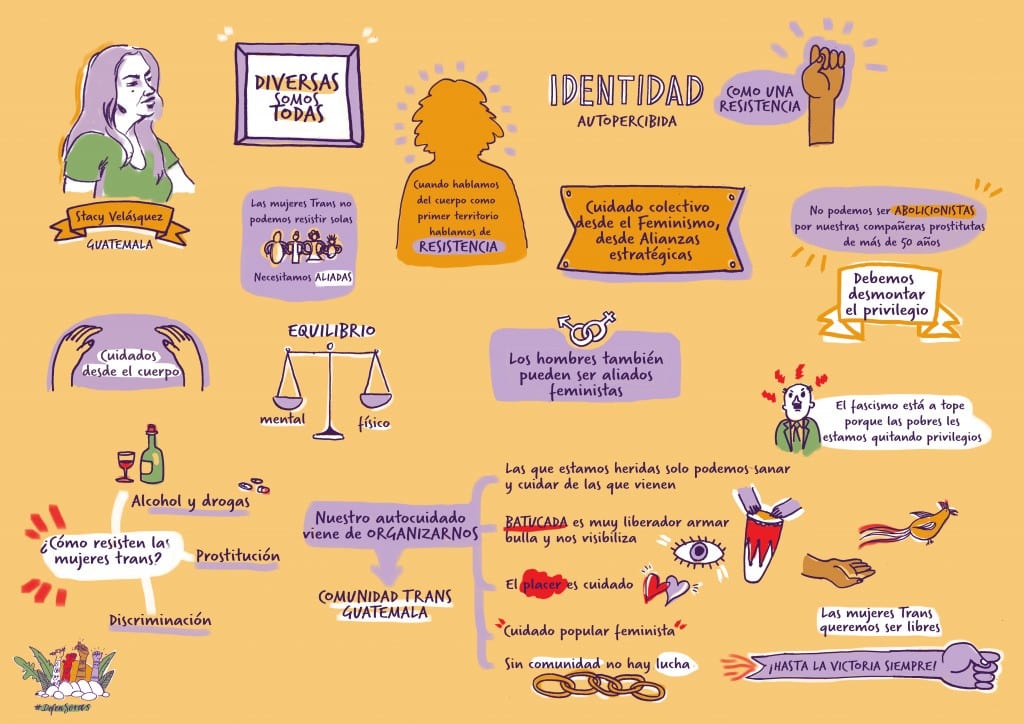 DIVERSAS
SOMOS
TODAS
IDENTIDAD
AUTOPERCIBIDA
COMO UNA
RESISTENCIA
Stacy Velásquez
GUATEMALA
Las mujeres Trans no
podemos resistir solas
Necesitamos ALIADAS
Cuando hablamos
del cuerpo como
primer territorio
hablamos de
RESISTENCIA
Cuidado colectivo
desde el Feminismo,
desde Alianzas
estratégicas
No podemos ser ABOLICIONISTAS
por nuestras compañeras prostitutas
de más de 50 años
Debemos
desmontar
el privilegio
Cuidados
desde el cuerpo
EQUILIBRIO
mental
físico
Los hombres también
pueden ser aliados
feministas
El fascismo está a tope
porque las pobres les
estamos quitando privilegios
Alcohol y drogas
¿Cómo resisten las
mujeres trans?
Prostitución
Discriminación
Nuestro autocuidado
viene de ORGANIZARNOS
COMUNIDAD TRANS
GUATEMALA
Las que estamos heridas solo podemos sanar
y cuidar de las que vienen
BATUCADA es muy liberador armar
bulla y nos visibiliza
El placer es cuidado
"Cuidado popular feminista"
Sin comunidad no hay lucha
Las mujeres Trans
queremos ser libres
¡HASTA LA VICTORIA SIEMPRE!